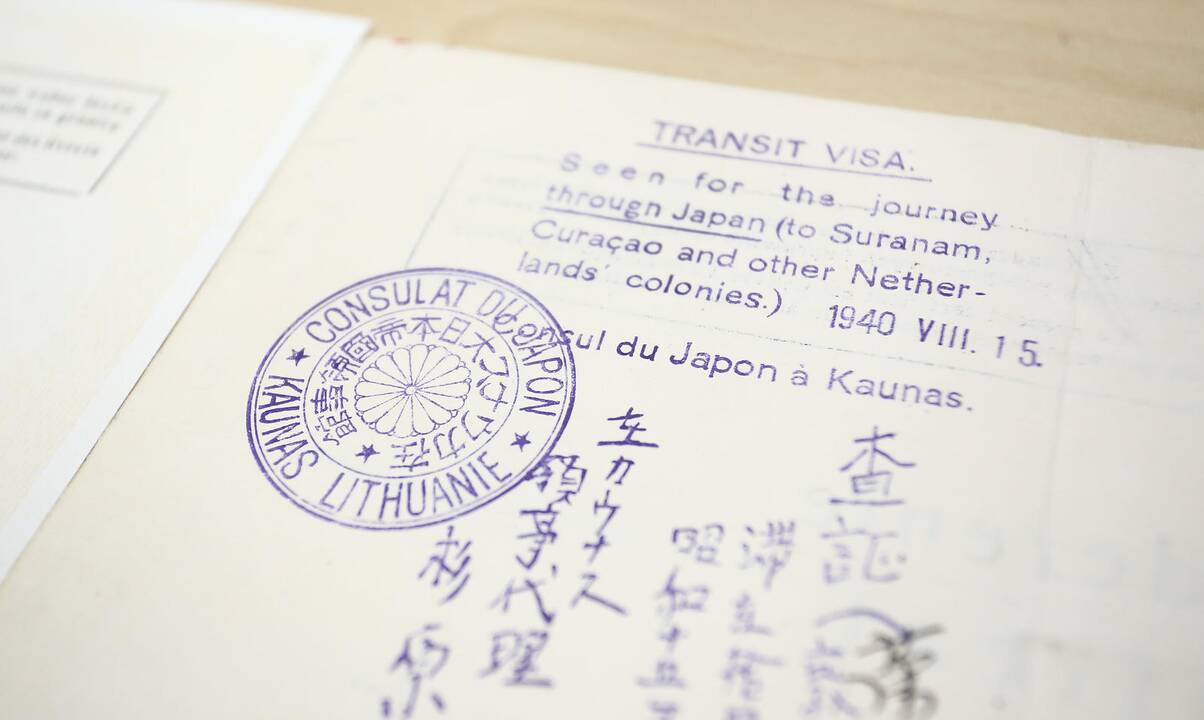 TRANSIT VISA.
Seen for the journey
through Japan (to Suranam,
Curaçao and other Nether-
lands' colonies.) 1940 VIII. 15.
Consul du Japon à Kaunas.
CONSULAT DU JAPON
KAUNAS LITHUANIE
在カウナス大日本帝國領事館
査証
昭和十五
在カウナス
領事代理
杉原